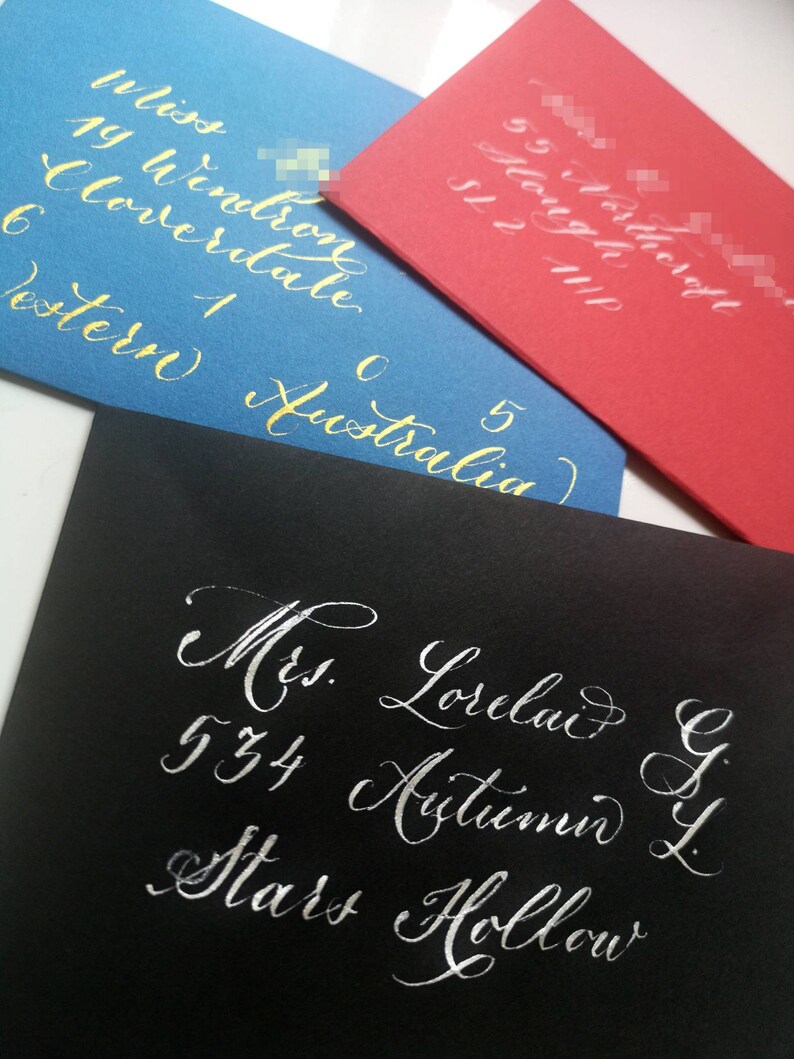 Miss
19 Wendron
Cloverdale
6 1 0 5
estern Australia
55 Northcroft
Slough
SL2 1HP
Mrs. Lorelai G.
534 Autumn L.
Stars Hollow